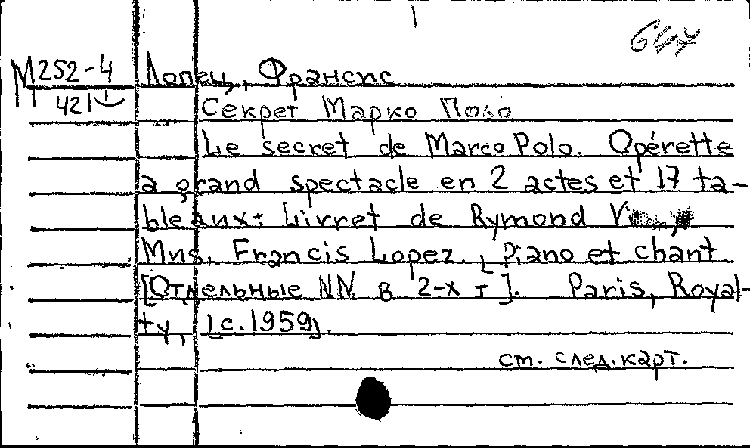 647
М 252-4 Лопец, Франсис
421 Секрет Марко Поло
Le secret de Marco Polo. Opérette
à grand spectacle en 2 actes et 17 ta-
bleaux: Livret de Rymond
Mus. Francis Lopez. Piano et chant
[Отдельные NN. в 2-х т]. Paris, Royal-
ty, [c.1959].
см. след. карт.